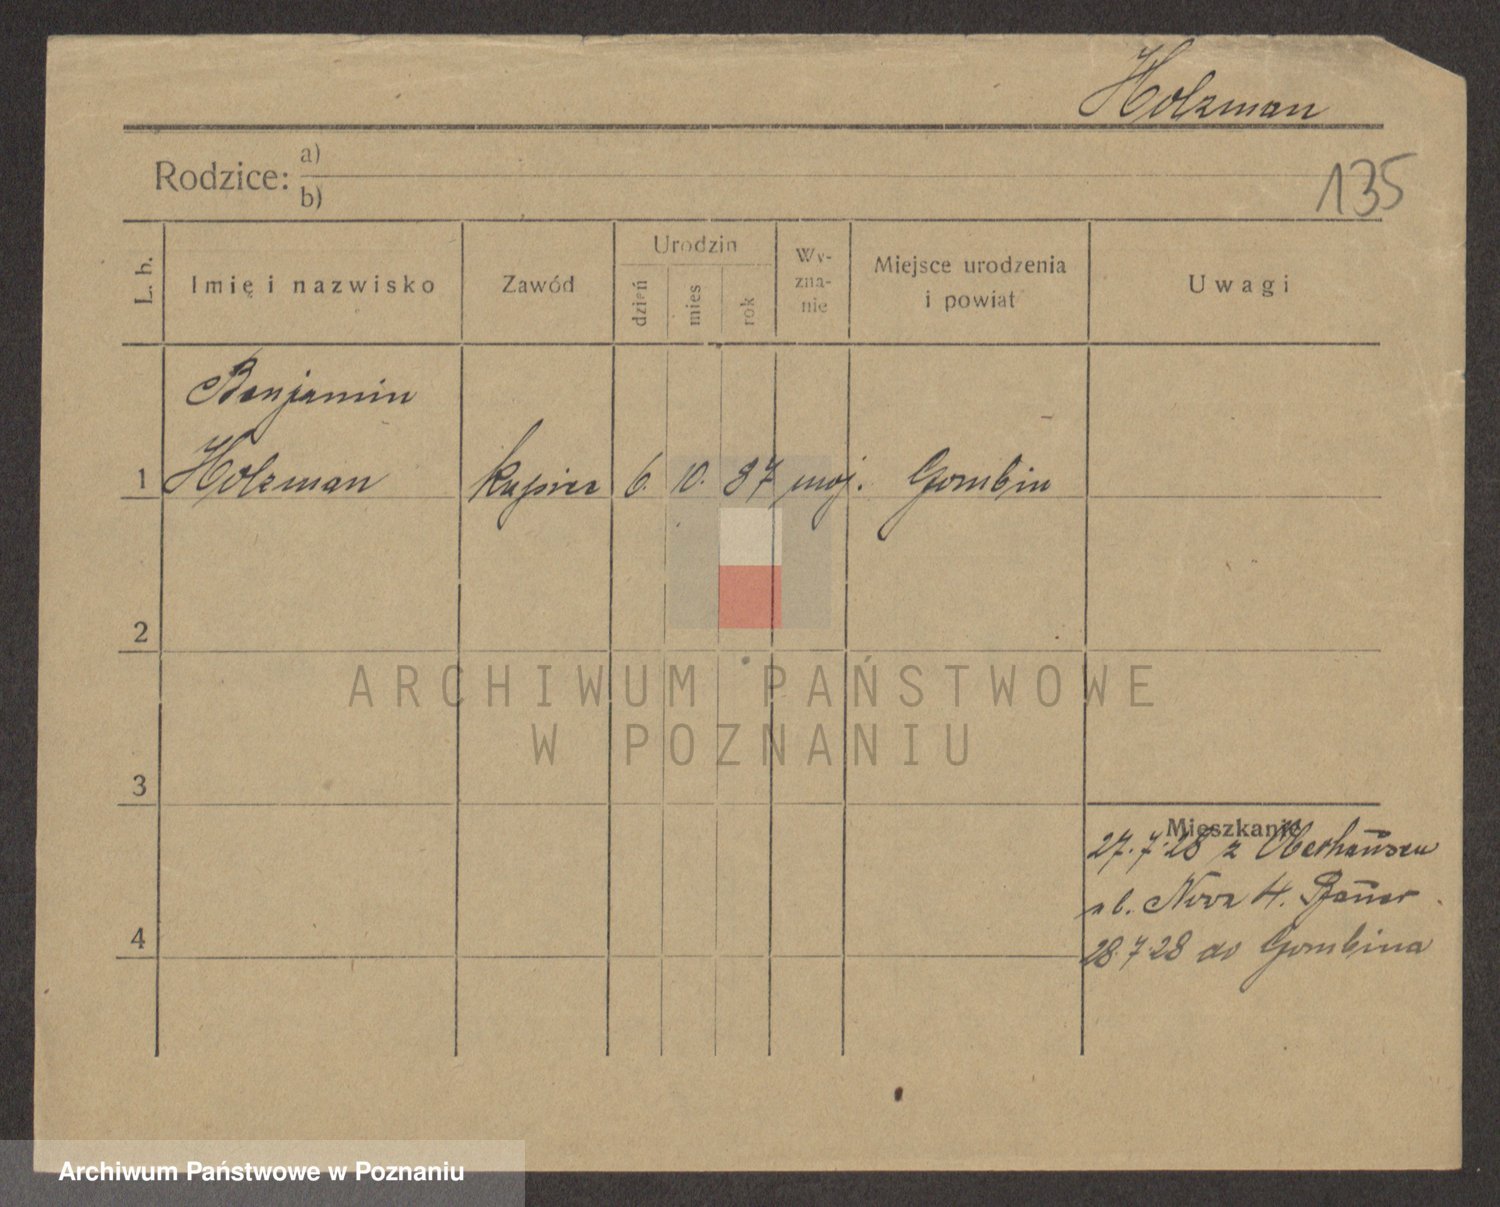 Holzman
Rodzice: a)
b)
135
L. b.
Imię i nazwisko
Zawód
Urodzin
dzień
mies
rok
Wy-
zna-
nie
Miejsce urodzenia
i powiat
Uwagi
Benjamin
1 Holzman kupiec 6. 10. 87 moj. Gombin
2
3
4
Mieszkanie
27.7.28 z Oberhausen
ul. Nowa 4.
28.7.28 do Gombina
ARCHIWUM PAŃSTWOWE
W POZNANIU
Archiwum Państwowe w Poznaniu